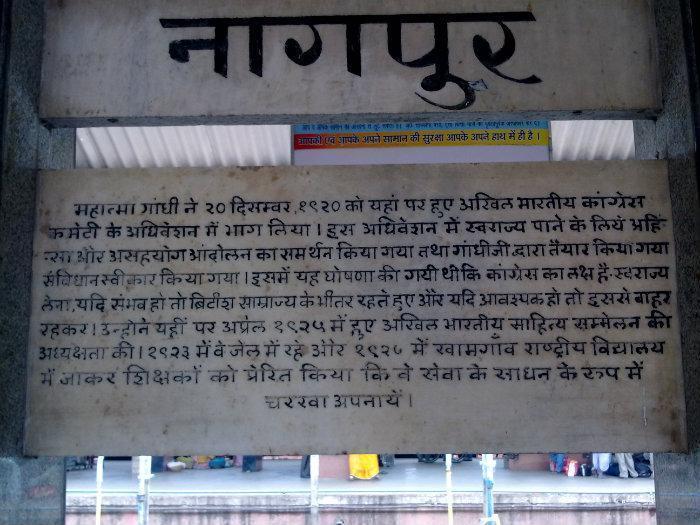 नागपुर
आपकी एवं आपके अपने सामान की सुरक्षा आपके अपने हाथ में ही है ।
महात्मा गांधी ने २० दिसम्बर, १९२० को यहां पर हुए अखिल भारतीय कांग्रेस
कमेटी के अधिवेशन में भाग लिया । इस अधिवेशन में स्वराज्य पाने के लिये अहिं-
सा और असहयोग आंदोलन का समर्थन किया गया तथा गांधीजी द्वारा तैयार किया गया
संविधान स्वीकार किया गया । इसमें यह घोषणा की गयी थी कि कांग्रेस का लक्ष है-स्वराज्य
लेना, यदि संभव हो तो ब्रिटीश साम्राज्य के भीतर रहते हुए और यदि आवश्यक हो तो इससे बाहर
रहकर । उन्होंने यहीं पर अप्रैल १९२५ में हुए अखिल भारतीय साहित्य सम्मेलन की
अध्यक्षता की । १९२३ में वे जेल में रहे और में खामगाँव राष्ट्रीय विद्यालय
में जाकर शिक्षकों को प्रेरित किया कि वे सेवा के साधन के रुप में
चरखा अपनायें ।